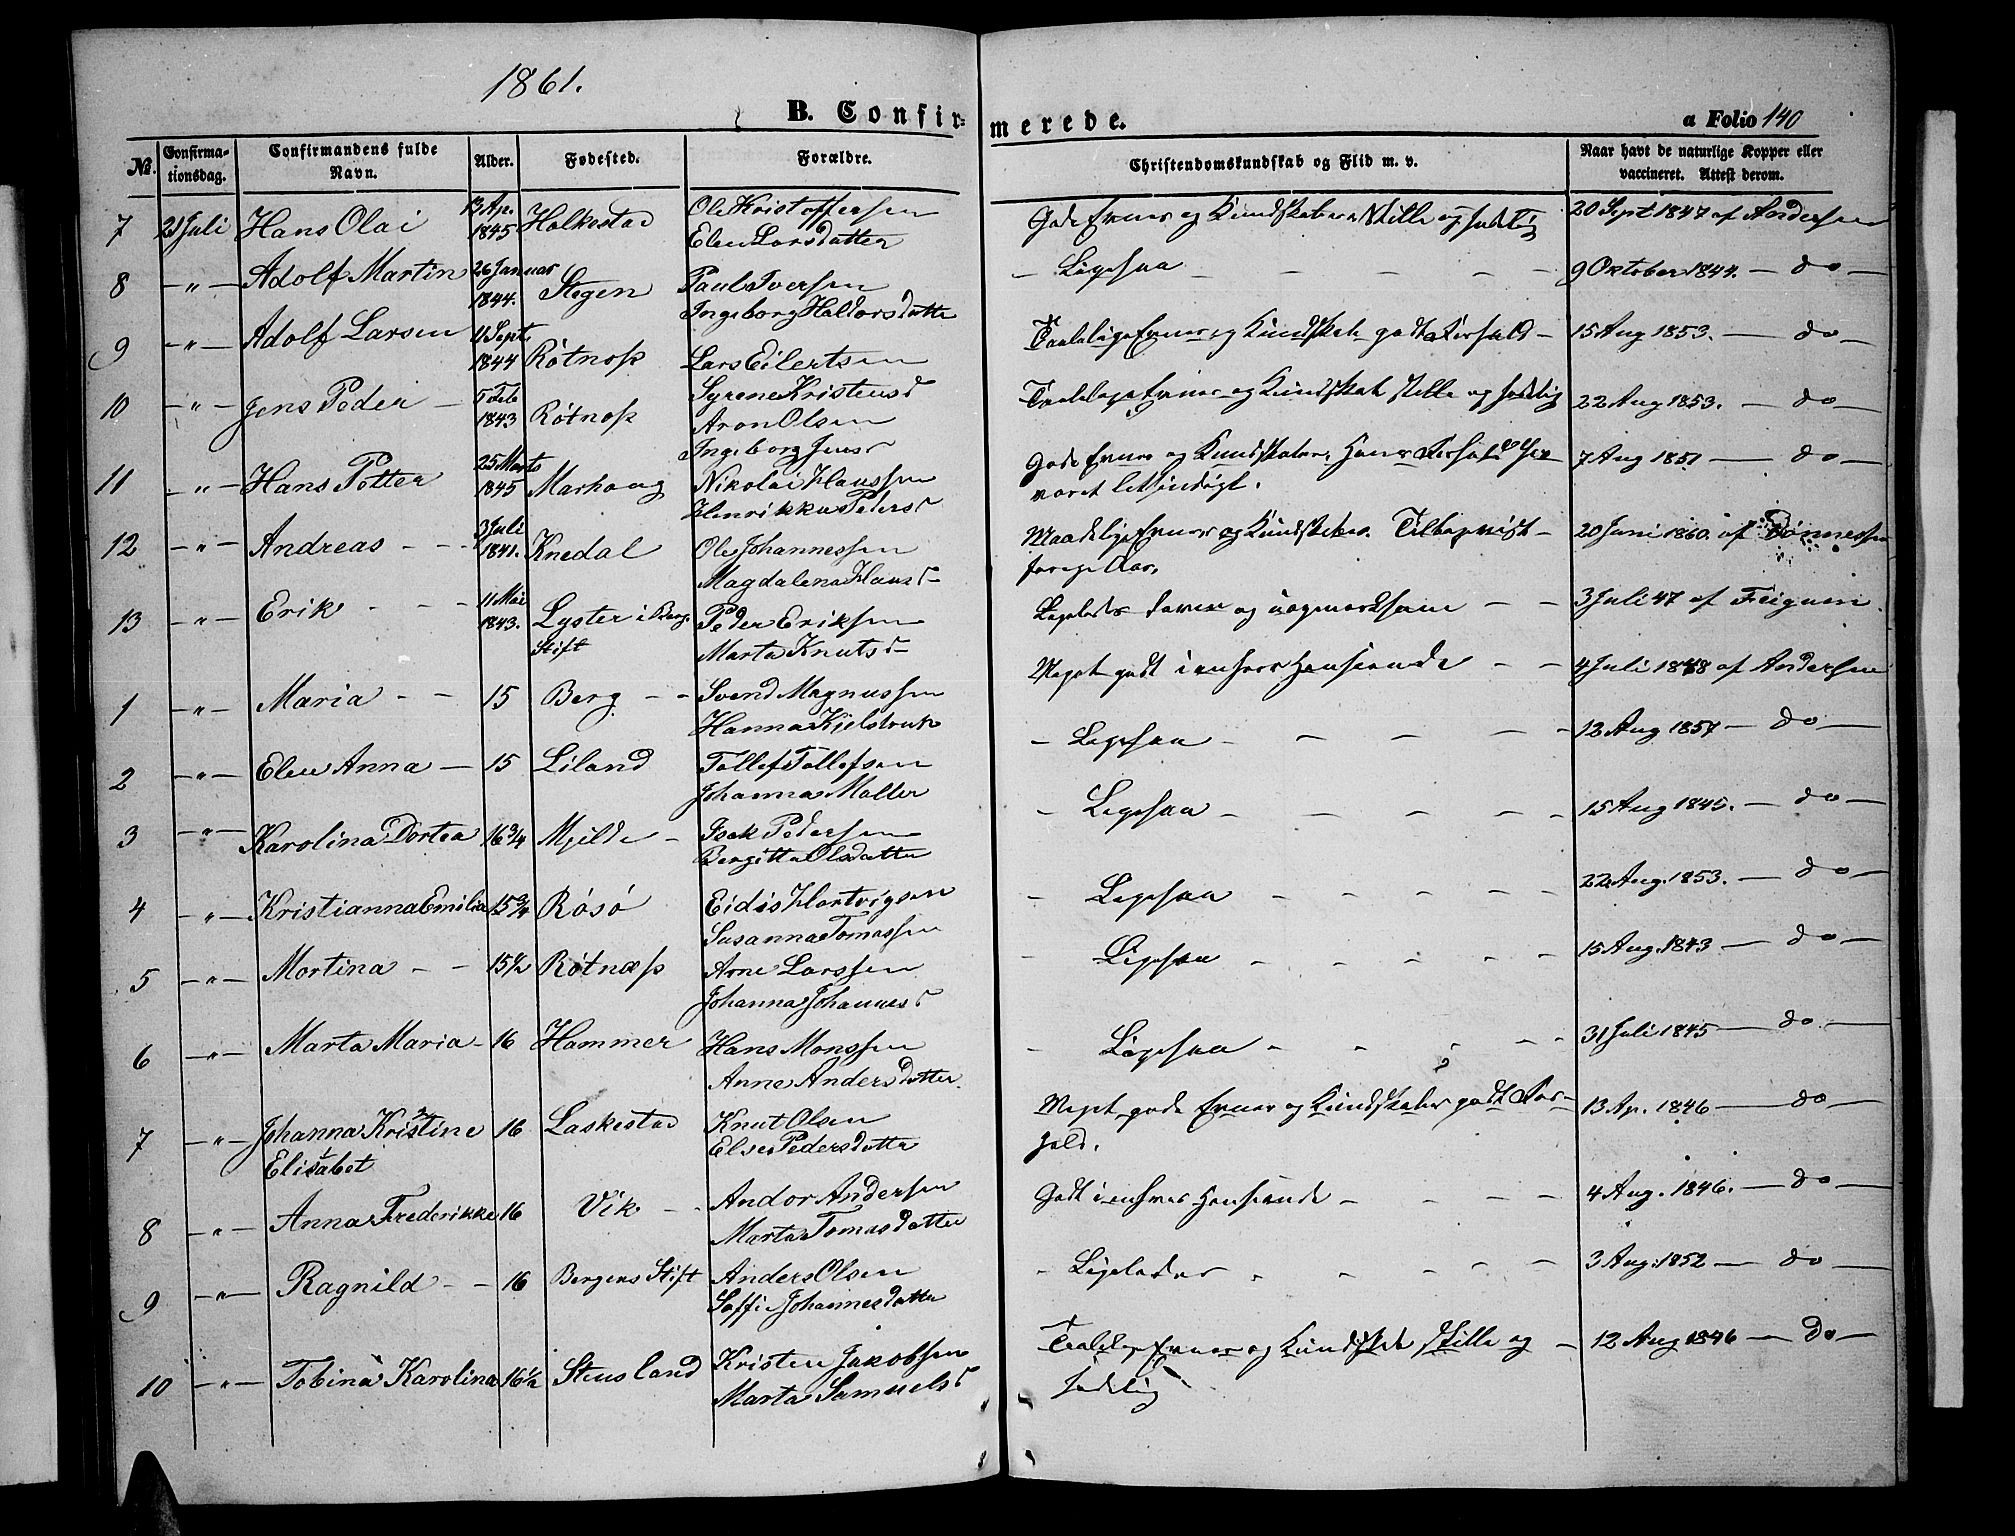 1861.
B. Confir=
merede.
a Folio 140
No.
Confirma-
tionsdag.
Confirmandens fulde
Navn.
Alder.
Fødested.
Forældre.
Christendomskundskab og Flid m. v.
Naar havt de naturlige Kopper eller
vaccineret. Attest derom.
7 21 Juli Hans Olai 13 Ap. 1845 Holkestad Ole Kristoffersen
Elen Larsdatter
Gode Evner og Kundskaber. Stille og sædelig 20 Sept 1847 af Andersen
8 -"- Adolf Martin 26 Januar 1844. Stegen Paul Iversen
Ingeborg Haldorsdatter
- Ligesaa - - - - - 9 Oktober 1844. - do -
9 -"- Adolf Larsen 11 Sept. 1844 Røtnæss Lars Eilertsen
Syrene Kristensd
Taalelige Evner og Kundskab godt Forhold - 15 Aug 1853. - do -
10 -"- Jens Peder - 5 Feb 1843 Røtnæss Aron Olsen
Ingeborg Jensd
Taalelige Evner og Kundskab stille og sædelig 22 Aug 1853. - do -
11 -"- Hans Petter 25 Marts 1845 Marhaug Nikolai Hanssen
Henrikka Pedersd
Gode Evner og Kundskaber. Hans Forhold har
været letsindigt. 7 Aug 1851 - do -
12 -"- Andreas - - 3 Juli 1841. Knedal Ole Johannessen
Magdalena Hansd
Maadelige Evner og Kundskaber. Tilbagevist
forrige Aar. 20 Juni 1860. af Dønnessen
13 -"- Erik - - - 11 Mai 1843. Lyster i Berg.
Stift Peder Eriksen
Marta Knutsd
Ligeledes doven og uopmærksom - - 3 Juli 47 af
1 -"- Maria - - 15 Berg - - Svend Magnussen
Hanna Kjelstrup
Meget godt i enhver Henseende - - 4 Juli 1848 af Andersen
2 -"- Elen Anna - 15 Liland Tollef Tollefsen
Johanna Møller
- Ligesaa - - - - - 12 Aug 1857 - do -
3 -"- Karolina Dortea 16 3/4 Mjelde - Isak Pedersen
Bergitta Olsdatter
- Ligesaa - - - - - 15 Aug 1845. - do -
4 -"- Kristianna Emilia 15 3/4 Røsø Eidis Hartvigsen
Susanna Tomassen
- Ligesaa - - - - - 22 Aug. 1853. - do -
5 -"- Martina - - 15 1/2 Røtnæss Arne Larssen
Johanna Johannesd
- Ligesaa - - - - - 15 Aug. 1843 - do -
6 -"- Marta Maria - 16 Hammer Hans Monssen
Anne Andersdatter.
- Ligesaa - - - - - 31 Juli 1845 - do -
7 -"- Johanna Kristine
Elisabet 16 Laskestad Knut Olsen
Else Pedersdatter
Meget gode Evner og Kundskaber godt For-
hold. 13 Ap. 1846 - do -
8 -"- Anna Frederikke 16 Vik - - Andor Andersen
Marta Tomasdatter
Godt i enhver Henseende - - - - 4 Aug. 1846. - do -
9 -"- Ragnild - - 16 Bergens Stift Anders Olsen
Saffi Johannesdatter
- Ligeledes - - - - - 3 Aug: 1852 - do -
10 -"- Tobina Karolina 16 1/2 Stensland Kristen Jakobsen
Marta Samuelsd
Taalelige Evner og Kundskab stille og -
sædelig 12 Aug 1846 - do -